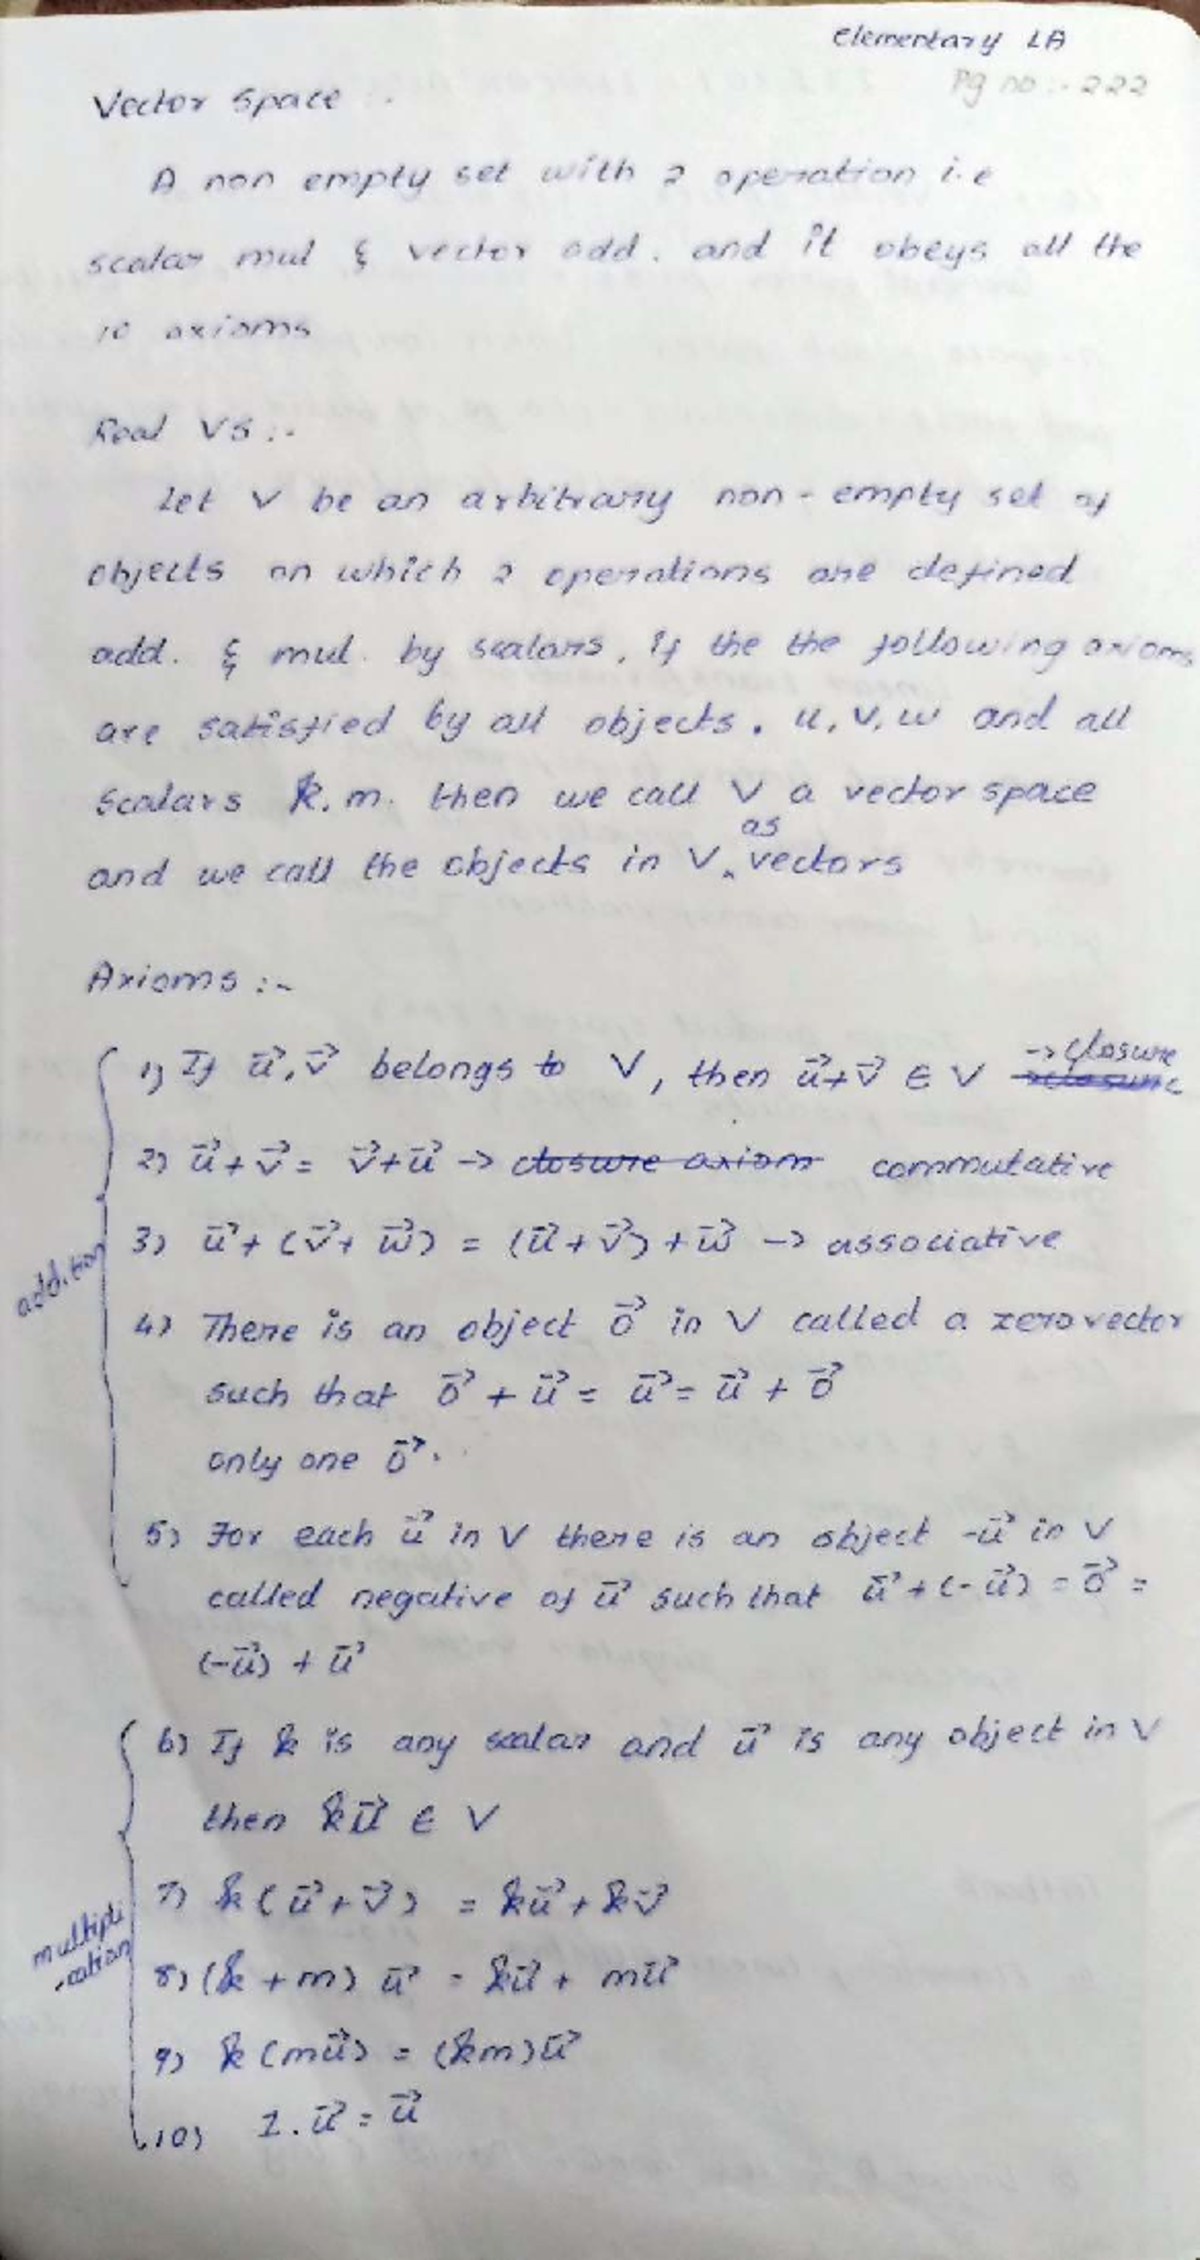 Elementary LA
Pg no :- 222
Vector Space :-
A non empty set with 2 operation i.e
scalar mul & vector add. and it obeys all the
10 axioms
Real VS :-
Let V be an arbitrary non-empty set of
objects on which 2 operations are defined
add. & mul. by scalars, if the the following axioms
are satisfied by all objects. u, v, w and all
scalars k, m. then we call V a vector space
as
and we call the objects in V ‸ vectors
Axioms :-
1) If u⃗, v⃗ belongs to V, then u⃗+v⃗ ∈ V → closure
2) u⃗+v⃗ = v⃗+u⃗ → closure axiom commutative
3) u⃗+(v⃗+w⃗) = (u⃗+v⃗)+w⃗ → associative
addition
4) There is an object 0⃗ in V called a zero vector
such that 0⃗ + u⃗ = u⃗ = u⃗ + 0⃗
only one 0⃗.
5) For each u⃗ in V there is an object -u⃗ in V
called negative of u⃗ such that u⃗+(-u⃗) = 0⃗ =
(-u⃗) + u⃗
6) If k is any scalar and u⃗ is any object in V
then ku⃗ ∈ V
7) k(u⃗+v⃗) = ku⃗+kv⃗
multipli
-cation
8) (k+m) u⃗ = ku⃗ + mu⃗
9) k(mu⃗) = (km)u⃗
10) 1.u⃗ = u⃗